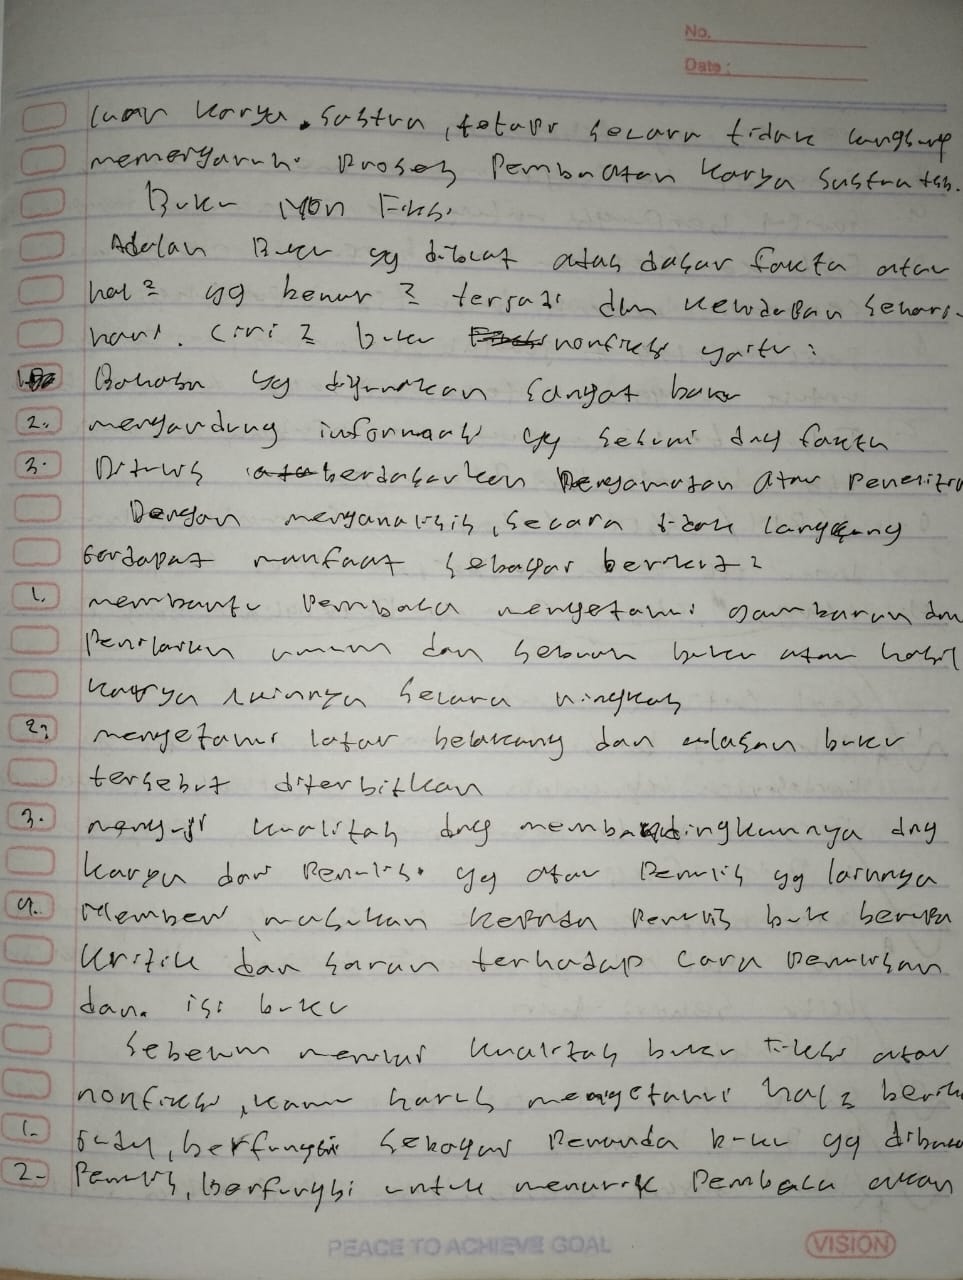 No.
Date:
luar karya sastra, tetapi secara tidak langsung
memengaruhi proses pembuatan karya sastra tsb.
Buku Non Fiksi
Adalah Buku yg dibuat atas dasar fakta atau
hal2 yg benar2 terjadi dlm kehidupan sehari-
hari. Ciri2 buku nonfiksi yaitu:
1. Bahasa yg digunakan sangat baku
2. mengandung informasi yg sesuai dng fakta
3. Ditulis berdasarkan Pengamatan atau Peneliti
Dengan menganalisis, secara tidak langsung
terdapat manfaat sebagai berikut2
1. membantu Pembaca mengetahui gambaran dan
Penilaian umum dan sebuah buku atau hasil
karya lainnya secara ringkas
2. mengetahui latar belakang dan alasan buku
tersebut diterbitkan
3. menguji kualitas dng membandingkannya dng
karya dari Penulis yg atau Penulis yg lainnya
4. Memberi masukan kepada Penulis buku berupa
kritik dan saran terhadap cara Penulisan
dan isi buku
Sebelum menilai kualitas buku Fiksi atau
nonfiksi, kamu harus mengetahui hal2 berik
1. berfungsi sebagai Penanda buku yg dibaca
2. Penulis, berfungsi untuk menarik Pembaca akan
PEACE TO ACHIEVE GOAL
VISION